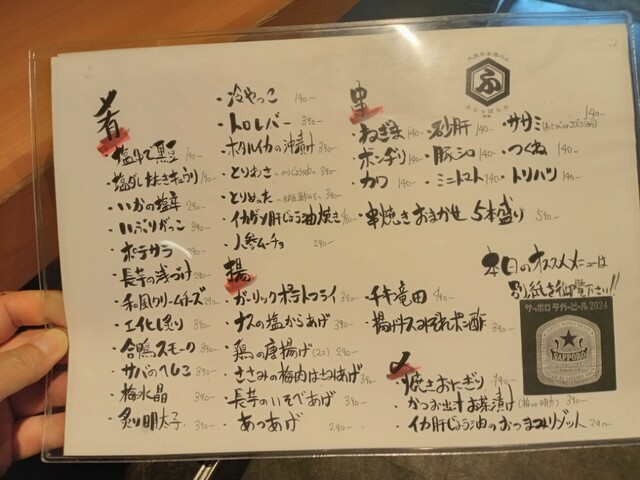 肴
・塩ゆで黒豆 190-
・塩ダレたたきキュウリ 190-
・いかの塩辛 290-
・いぶりがっこ 390-
・ポテサラ 290-
・長芋の浅づけ 290-
・和風クリームチーズ 290-
・エイヒレ炙り 390-
・合鴨スモーク 390-
・サバのへしこ 390-
・梅水晶 390-
・炙り明太子 390-
・冷やっこ 190-
・トロレバー 390-
・ホタルイカの沖漬け 390-
・とりわさ 390-
・とりめった 390-
・イカゲソ肝じょう油焼き
・人参ムーチョ 290-
串
・ねぎま 140-
・砂肝 140-
・ササミ 140-
・ボンヂリ 140-
・豚シロ 140-
・つくね 140-
・カワ 140-
・ミニトマト 140-
・トリハツ 140-
・串焼きおまかせ 5本盛り 590-
揚
・ガーリックポテトフライ 390-
・ナスの塩からあげ 390-
・鶏の唐揚げ(2コ) 290-
・ささみの梅肉はさみ揚げ 390-
・長芋のいそべあげ 390-
・あつあげ 290-
・チキン竜田 490-
・揚げナスみぞれポン酢 390-
〆
・焼きおにぎり 190-
・かつお出汁お茶漬け 390-
・イカ肝じょう油のおつまみリゾット 390-
本日のオススメメニューは
別紙を御覧下さい!!
ふ
サッポロラガービール2024
SAPPORO